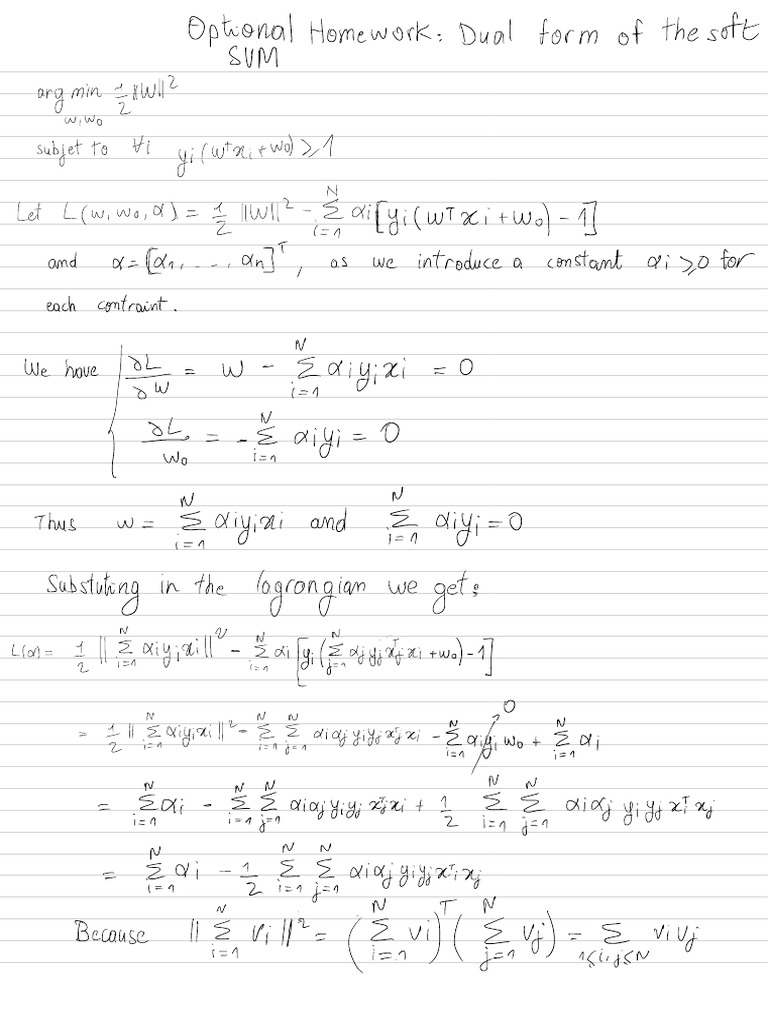 Optional Homework: Dual form of the soft
SVM
arg min 1/2 ||W||²
w, w₀
subjet to ∀i yᵢ(wᵀxᵢ + w₀) ≥ 1
Let L(w, w₀, α) = 1/2 ||W||² - Σ_{i=1}^{N} αᵢ[yᵢ(wᵀxᵢ + w₀) - 1]
and α = [α₁, ..., αₙ]ᵀ, as we introduce a constant αᵢ ≥ 0 for
each contraint.
We have { ∂L/∂W = w - Σ_{i=1}^{N} αᵢyᵢxᵢ = 0
∂L/w₀ = - Σ_{i=1}^{N} αᵢyᵢ = 0
Thus w = Σ_{i=1}^{N} αᵢyᵢxᵢ and Σ_{i=1}^{N} αᵢyᵢ = 0
Substuting in the lagrangian we get:
L(α) = 1/2 ||Σ_{i=1}^{N} αᵢyᵢxᵢ||² - Σ_{i=1}^{N} αᵢ[yᵢ(Σ_{j=1}^{N} αⱼyⱼxⱼᵀxᵢ + w₀) - 1]
= 1/2 ||Σ_{i=1}^{N} αᵢyᵢxᵢ||² - Σ_{i=1}^{N} Σ_{j=1}^{N} αᵢαⱼyᵢyⱼxⱼᵀxᵢ - Σ_{i=1}^{N} αᵢyᵢw₀ + Σ_{i=1}^{N} αᵢ 0
= Σ_{i=1}^{N} αᵢ - Σ_{i=1}^{N} Σ_{j=1}^{N} αᵢαⱼyᵢyⱼxⱼᵀxᵢ + 1/2 Σ_{i=1}^{N} Σ_{j=1}^{N} αᵢαⱼyᵢyⱼxᵢᵀxⱼ
= Σ_{i=1}^{N} αᵢ - 1/2 Σ_{i=1}^{N} Σ_{j=1}^{N} αᵢαⱼyᵢyⱼxᵢᵀxⱼ
Because ||Σ_{i=1}^{N} vᵢ||² = (Σ_{i=1}^{N} vᵢ)ᵀ(Σ_{j=1}^{N} vⱼ) = Σ_{1≤i,j≤N} vᵢvⱼ